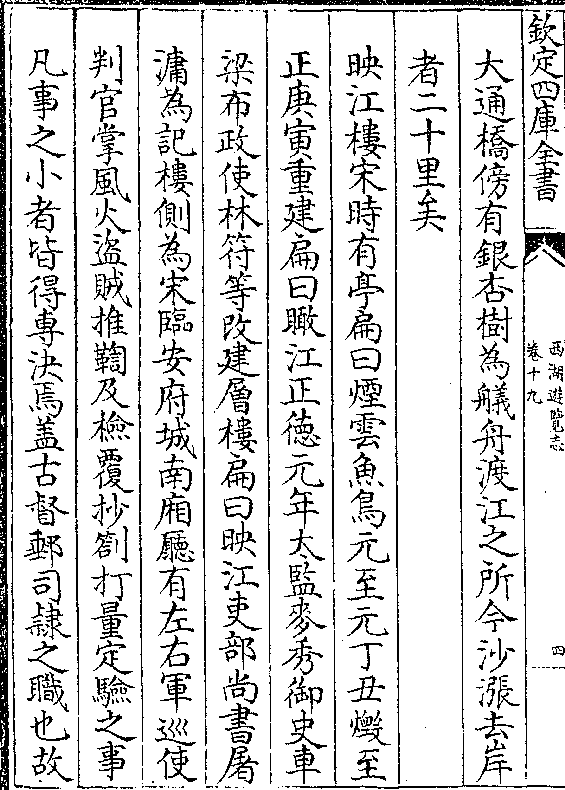 欽定四庫全書
西湖遊覽志
卷十九
四
大通橋傍有銀杏樹為艤舟渡江之所今沙漲去岸
者二十里矣
映江樓宋時有亭扁曰煙雲魚鳥元至元丁丑燬至
正庚寅重建扁曰瞰江正徳元年太監麥秀御史車
梁布政使林符等改建層樓扁曰映江吏部尚書屠
滽為記樓側為宋臨安府城南廂廳有左右軍巡使
判官掌風火盜賊推鞫及檢覆抄劄打量定驗之事
凡事之小者皆得専決焉蓋古督郵司隸之職也故